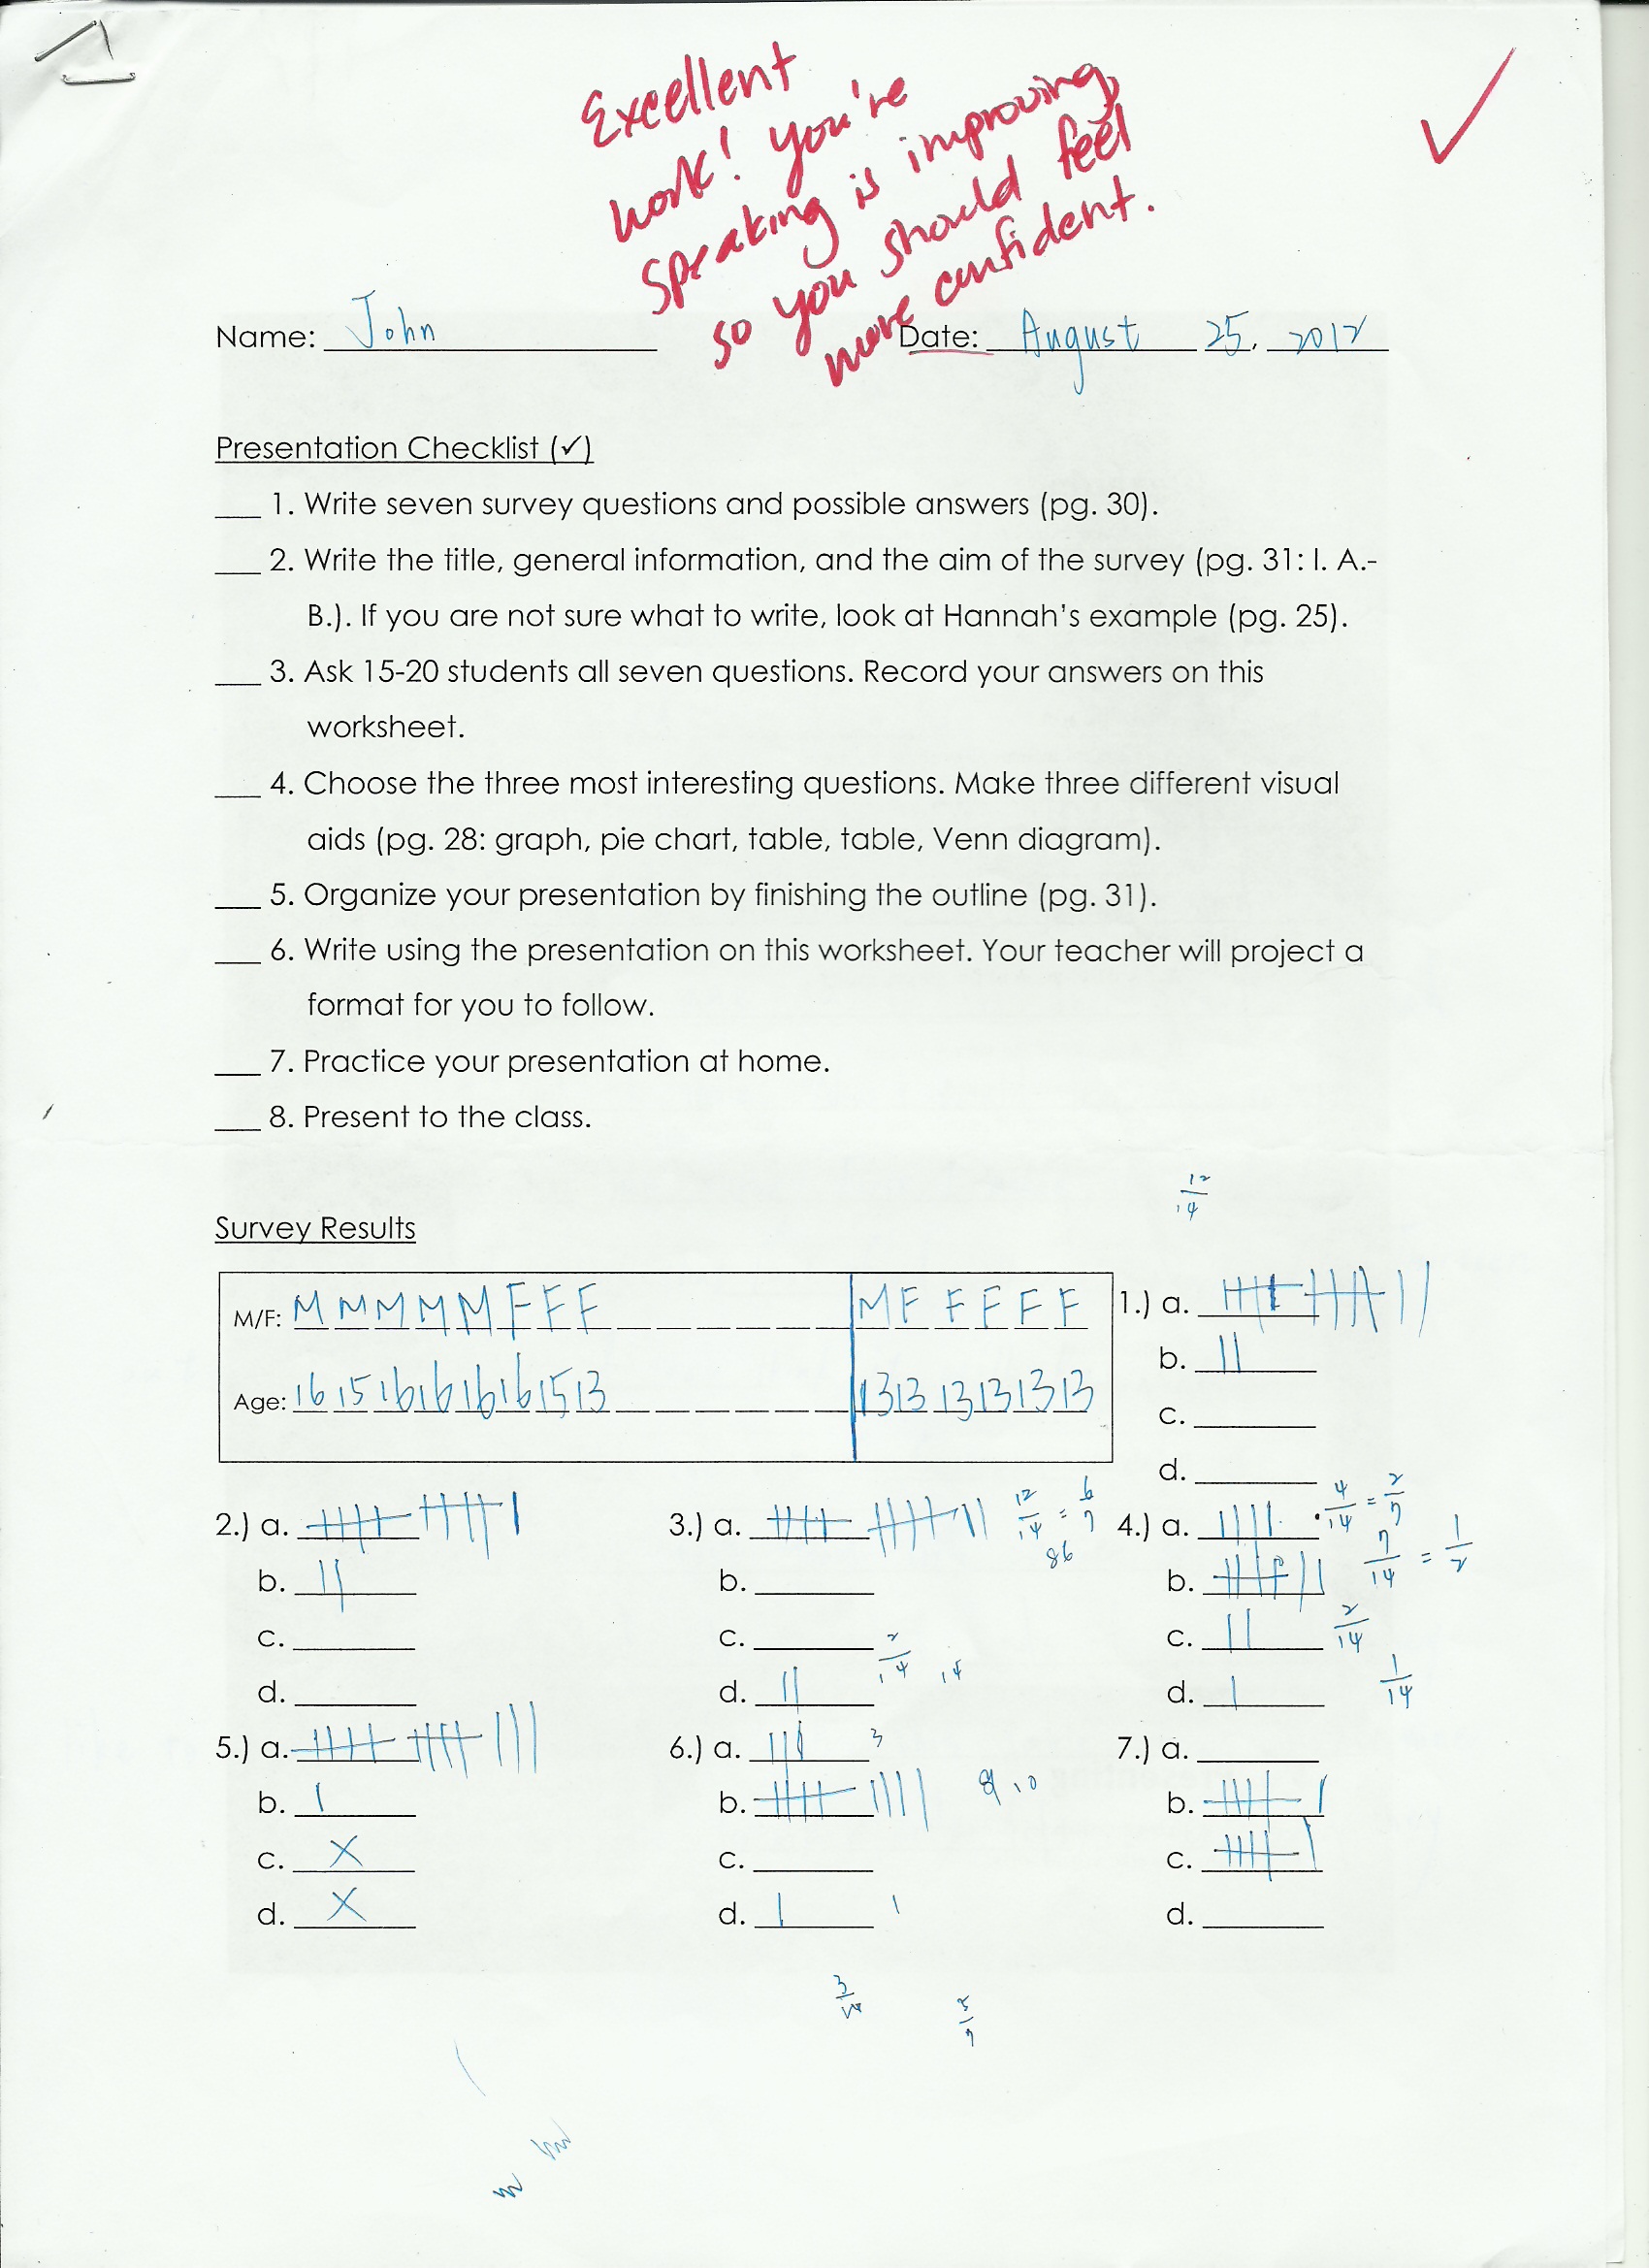 Excellent
work! you're
speaking is improving,
so you should feel
more confident.
Name: John Date: August 25, 2012
Presentation Checklist (✓)
___ 1. Write seven survey questions and possible answers (pg. 30).
___ 2. Write the title, general information, and the aim of the survey (pg. 31: I. A.-
B.). If you are not sure what to write, look at Hannah's example (pg. 25).
___ 3. Ask 15-20 students all seven questions. Record your answers on this
worksheet.
___ 4. Choose the three most interesting questions. Make three different visual
aids (pg. 28: graph, pie chart, table, table, Venn diagram).
___ 5. Organize your presentation by finishing the outline (pg. 31).
___ 6. Write using the presentation on this worksheet. Your teacher will project a
format for you to follow.
___ 7. Practice your presentation at home.
___ 8. Present to the class.
12/14
Survey Results
M/F: M M M M M F F F M F F F F F
Age: 16 15 16 16 16 16 15 13 13 13 13 13 13 13
1.) a.
b. ||
c.
d.
2.) a.
b. ||
c.
d.
3.) a. 12/14 = 6/7
86
b.
c.
2/14 14
d. ||
4.) a. |||| 4/14 = 2/7
b. 7/14 = 1/2
c. || 2/14
d. | 1/14
5.) a.
b. |
c. X
d. X
6.) a. ||| 3
b. 10
c.
d. | 1
7.) a.
b.
c.
d.
3/14